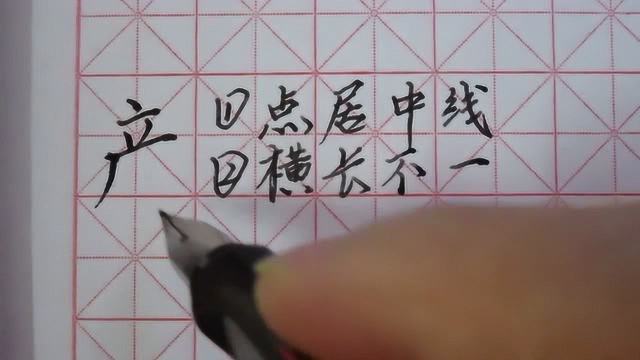 产
①点居中线
②横长不一